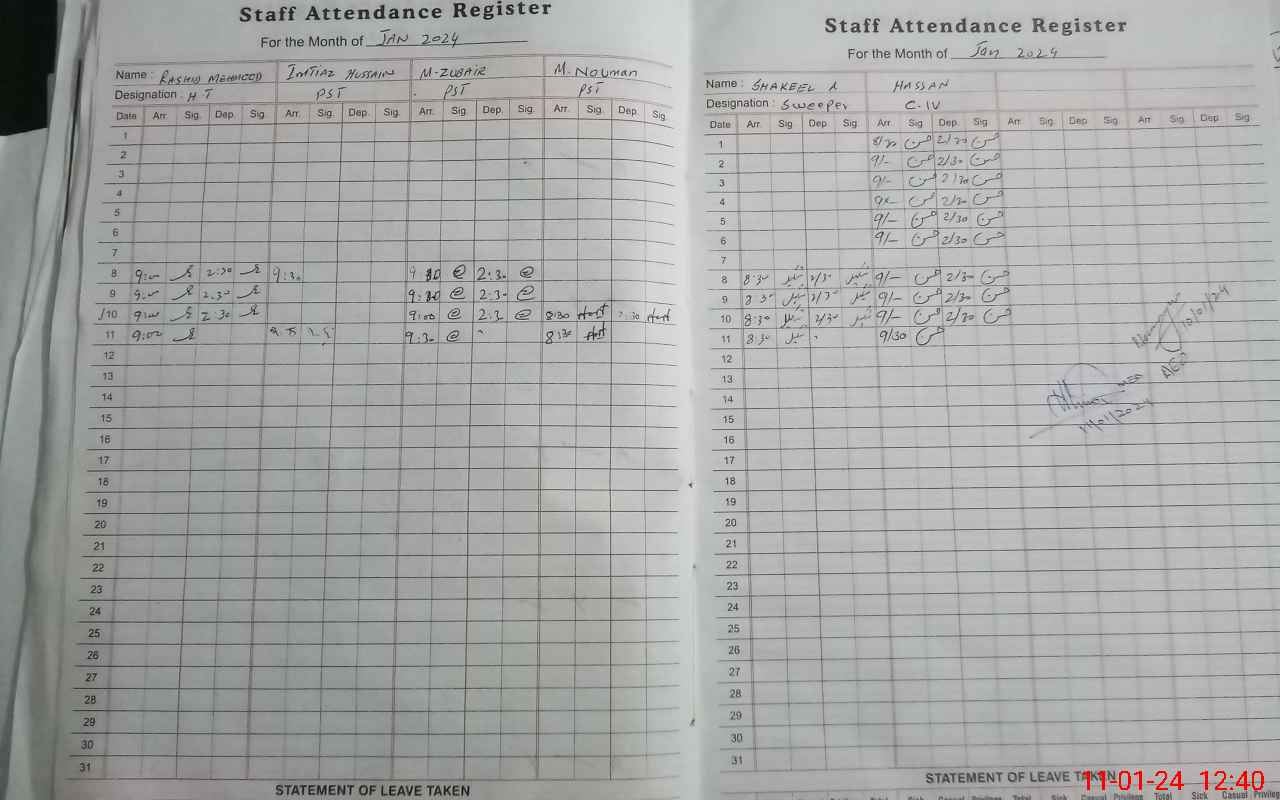 Staff Attendance Register
For the Month of JAN 2024
Name : RASHID MEHMOOD IMTIAZ HUSSAIN M-ZUBAIR M. NOUMAN
Designation : HT PST PST PST
Date Arr. Sig. Dep. Sig. Arr. Sig. Dep. Sig. Arr. Sig. Dep. Sig. Arr. Sig. Dep. Sig.
1
2
3
4
5
6
7
8 9:00 2:30 9:30 2:30
9 9:00 2:30 2:30
10 9:00 2:30 9:00 2:3 8:30 2:30
11 9:00 9:30 8:30
12
13
14
15
16
17
18
19
20
21
22
23
24
25
26
27
28
29
30
31
STATEMENT OF LEAVE TAKEN
Staff Attendance Register
For the Month of Jan 2024
Name : SHAKEEL A HASSAN
Designation : Sweeper C-IV
Date Arr. Sig Dep. Sig. Arr. Sig Dep. Sig Arr. Sig. Dep Sig. Arr. Sig. Dep Sig.
1 8/30 حسن 2/30 حسن
2 9/- حسن 2/30 حسن
3 9/- حسن 2/30 حسن
4 حسن 2/30 حسن
5 9/- حسن 2/30 حسن
6 9/- حسن 2/30 حسن
7
8 8:30 2/30 9/- حسن 2/30 حسن
9 8:30 2/30 9/- حسن 2/30 حسن
10 8:30 2/30 9/- حسن 2/30 حسن
11 8:30 9/30 حسن
12
13
14
15
16
17
18
19
20
21
22
23
24
25
26
27
28
29
30
31
10/01/24
AEO
STATEMENT OF LEAVE TAKEN
Total Sick Casual Privilege Total Sick Casual Privileg
11-01-24 12:40